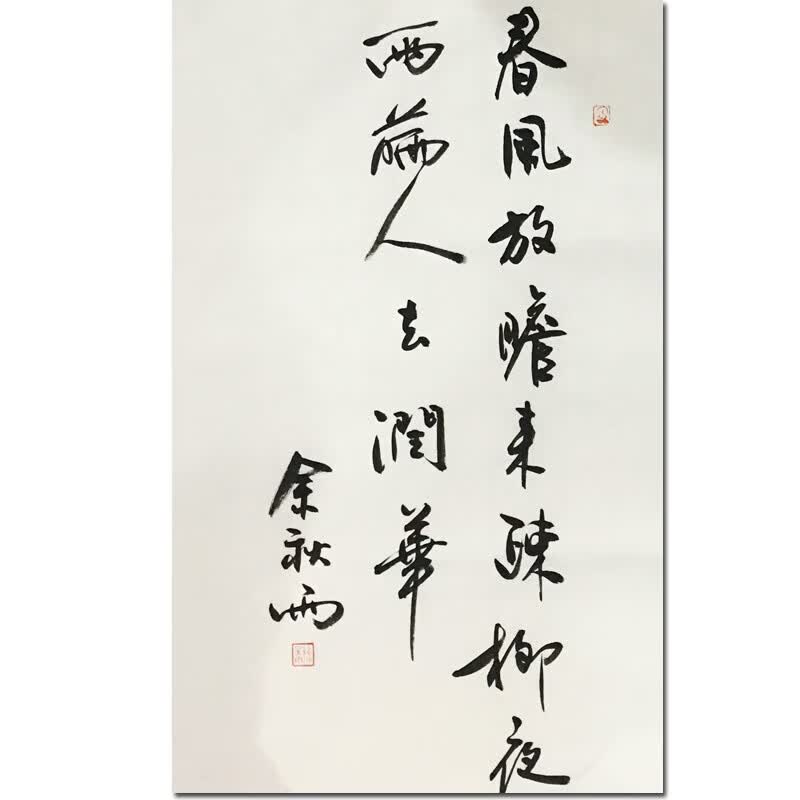 春風放膽來疎柳夜
雨瞞人去潤華
余秋雨